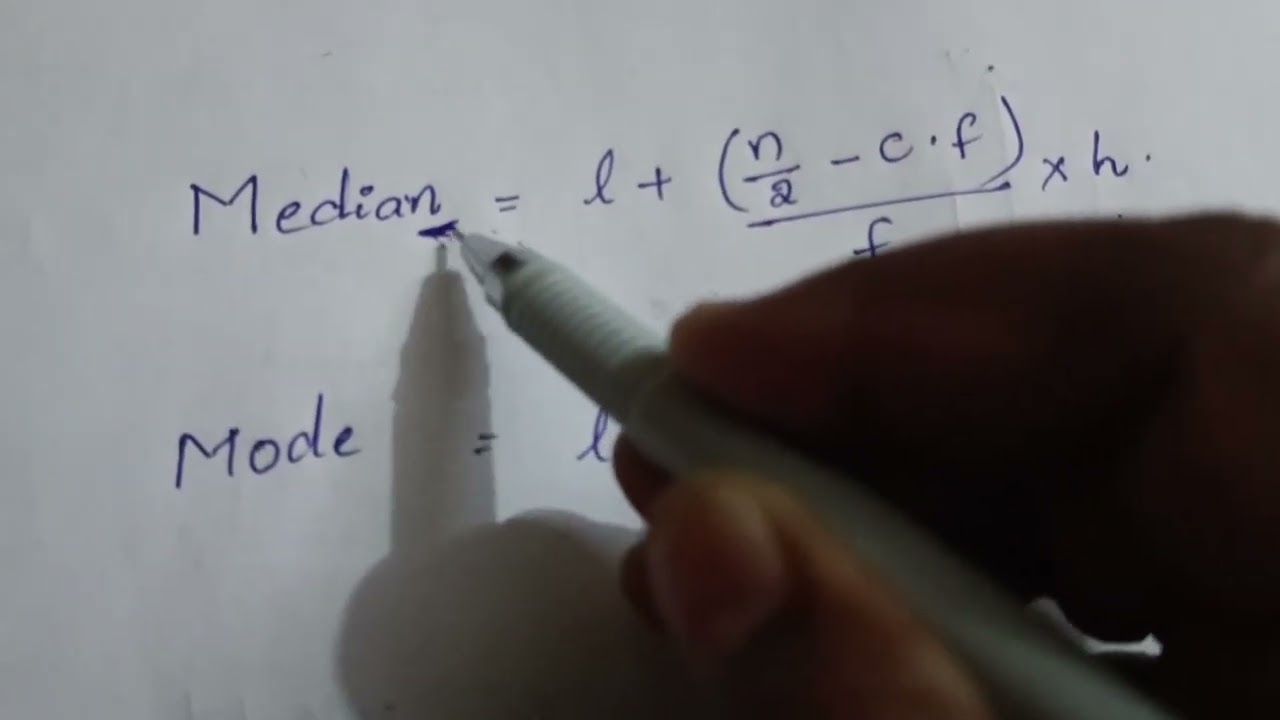 Median = l + (n/2 - c.f)/f × h.
Mode = l